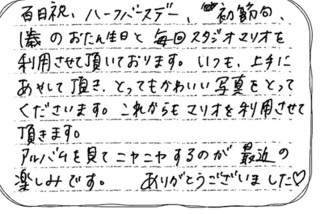 百日祝、ハーフバースデー、初節句、
1歳のおたん生日と毎回スタジオマリオを
利用させて頂いております。いつも、上手に
あやして頂き、とってもかわいい写真をとって
くださいます。これからもマリオを利用させて
頂きます。
アルバムを見てニヤニヤするのが最近の
楽しみです。 ありがとうございました♡